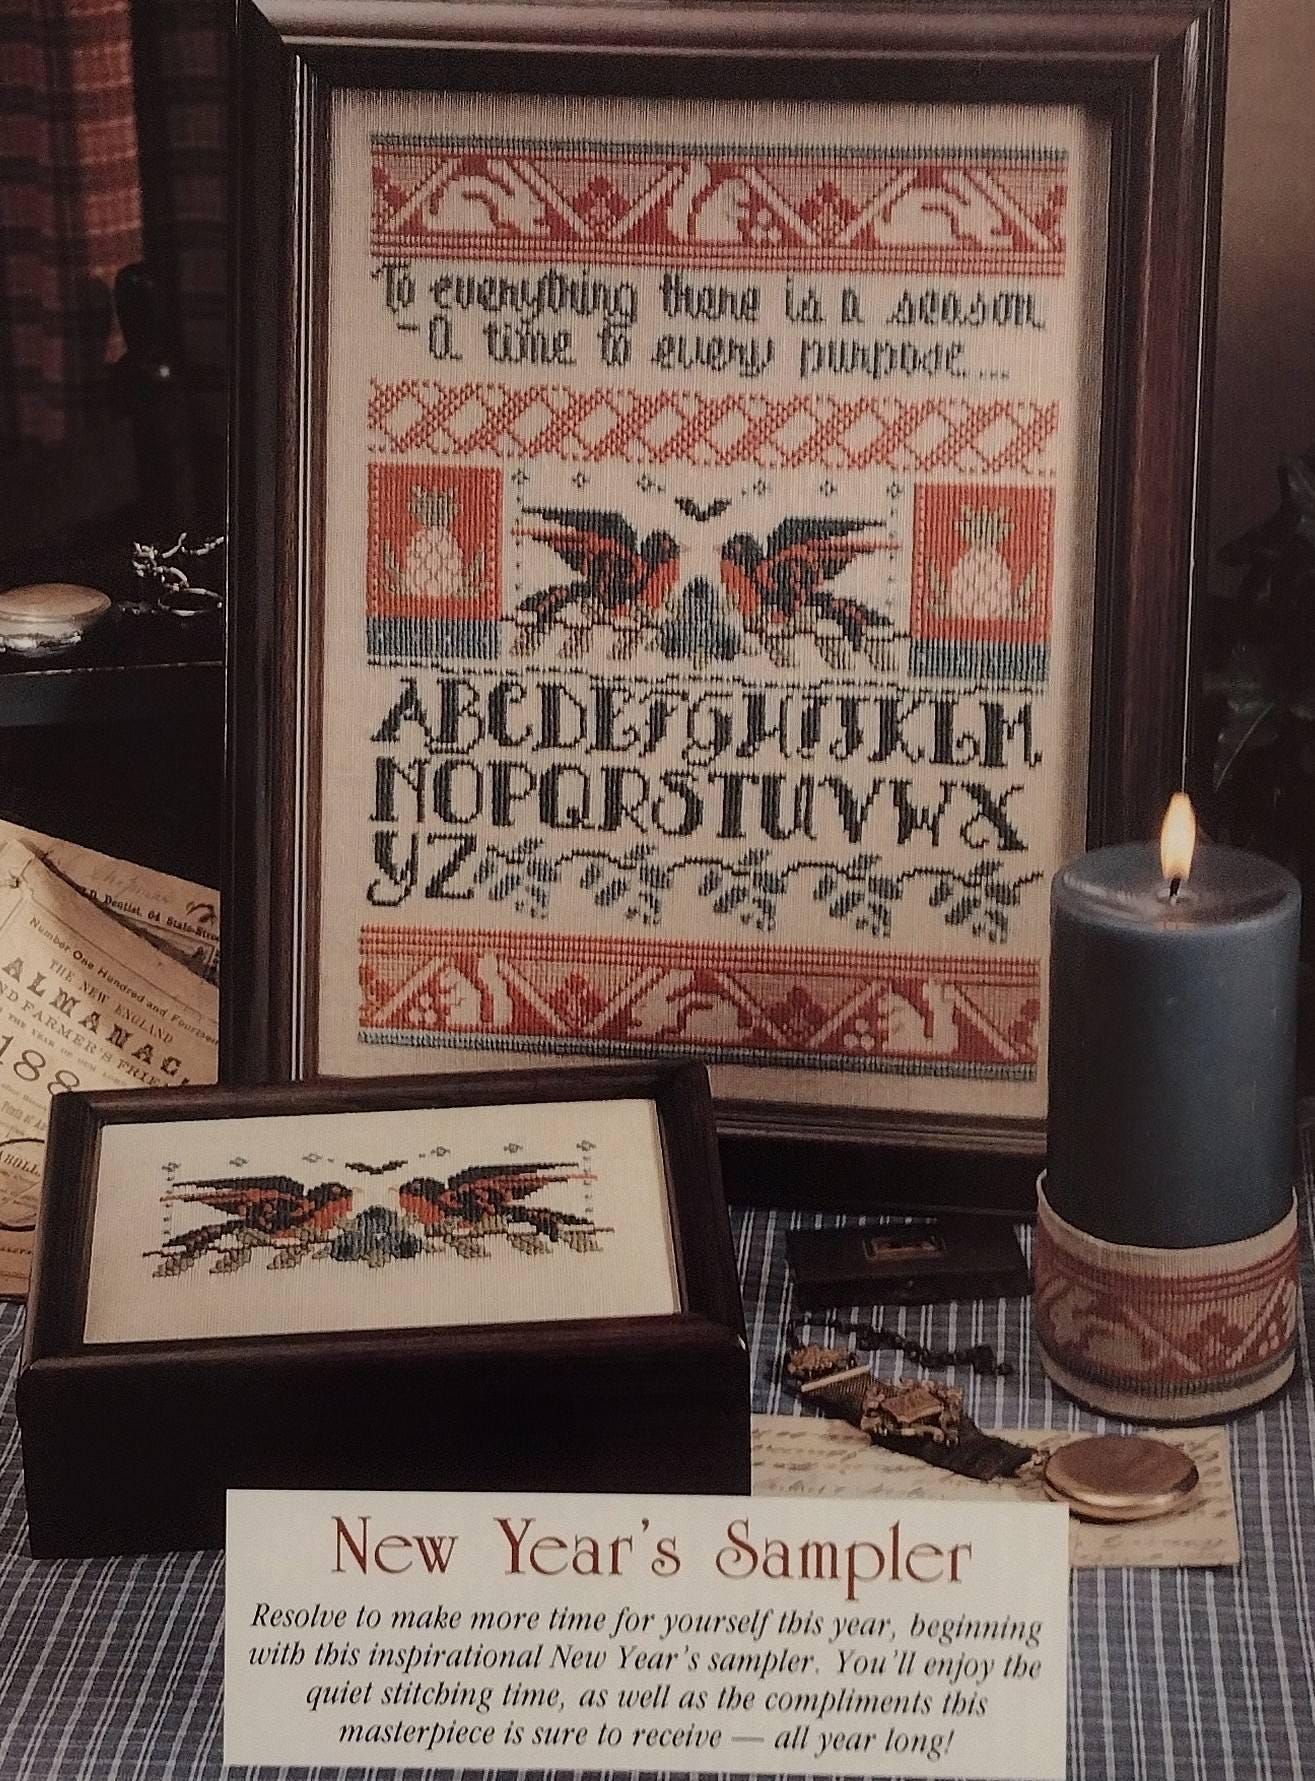 To everything there is a season
- A time to every purpose...
ABCDEFGHIJKLM
NOPQRSTUVWX
YZ
Dentist, 64 State-Stre
Number One Hundred and Fourteen
THE NEW ENGLAND
ALMANAC
ND FARMER'S FRIE
188
New Year's Sampler
Resolve to make more time for yourself this year, beginning
with this inspirational New Year's sampler. You'll enjoy the
quiet stitching time, as well as the compliments this
masterpiece is sure to receive — all year long!